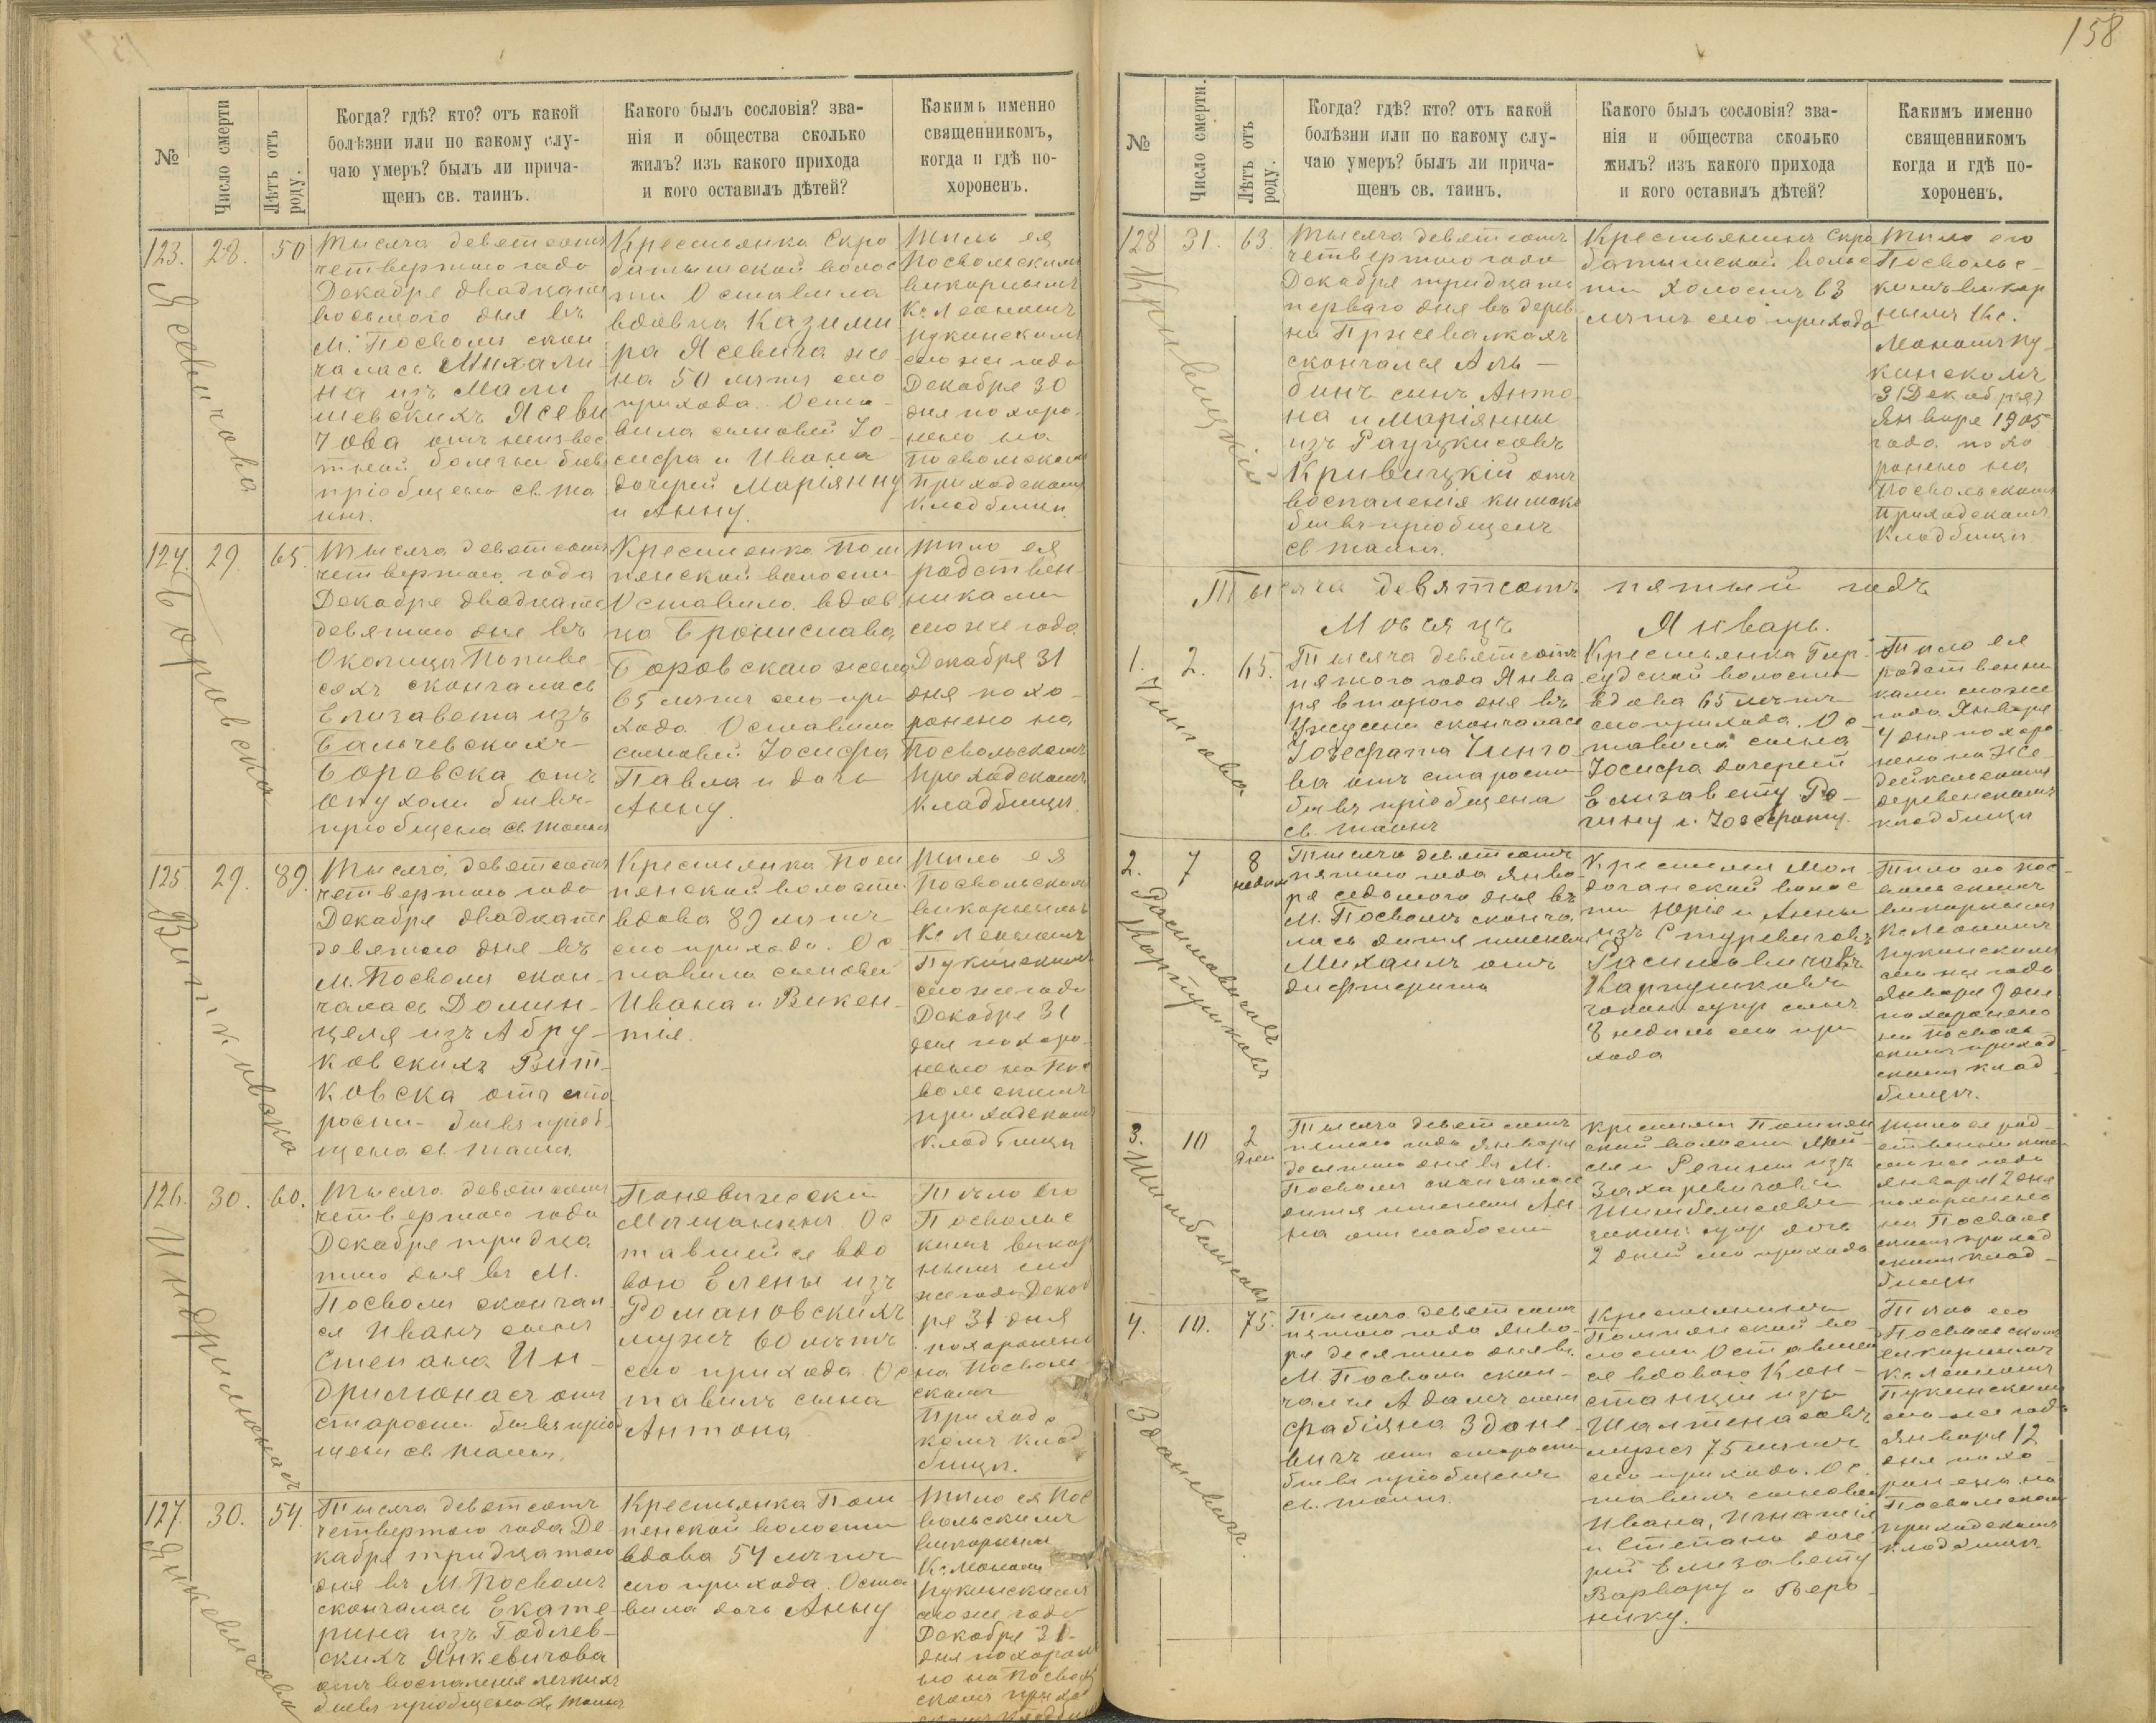 158
№
Число смерти
Лѣтъ отъ роду.
Когда? гдѣ? кто? отъ какой
болѣзни или по какому слу-
чаю умеръ? былъ ли прича-
щенъ св. таинъ.
Какого былъ сословія? зва-
нія и общества сколько
жилъ? изъ какого прихода
и кого оставилъ дѣтей?
Какимъ именно
священникомъ,
когда и гдѣ по-
хороненъ.
123.
28.
50
Ясевичова
Тысяча девятсотъ
четвертого года
Декабря двадцать
восьмого дня въ
М. Посволи скон
чалась Михали
на изъ Мали
шевскихъ Ясеви
чова отъ неизвес
тной болезни бывъ
пріобщена св. та
инъ.
Крестьянка Скро
батышской волос
ти Оставила
вдовца Казими
ра Ясевича же
на 50 летъ сего
прихода. Оста-
вила сыновей Іо-
сифа и Ивана
дочерей Маріянну
и Анну.
Тѣло ея
Посвольскимъ
викарнымъ
Кс.
сего же года
Декабря 30
дня похоро-
нено на
Посвольскомъ
Приходскомъ
Кладбищи.
124.
29.
65.
Боровска
Тысяча девятсотъ
четвертого года
Декабря двадцать
девятого дня въ
Околицы Попиве
сяхъ скончалась
Елизавета изъ
Бальчевскихъ
Боровска отъ
опухоли бывъ
пріобщена св. таинъ
Крестьянка Пом
пянской волости
Оставила вдов
ца Бронислава
Боровскаго жена
65 летъ сего при
хода. Оставила
сыновей Іосифа
Павла и дочь
Анну.
Тѣло ея
родствен
никами
сего же года
Декабря 31
дня похо-
ронено на
Посвольскомъ
приходскомъ
кладбищи.
125
29.
89.
Витковска
Тысяча девятсотъ
четвертого года
Декабря двадцать
девятого дня въ
М. Посволи скон-
чалась Домин-
целя изъ Абру-
ковскихъ Вит-
ковска отъ ста
рости бывъ пріоб
щена св. таинъ.
Крестьянка Пом
пянской волости
вдова 89 летъ
сего прихода. Ос-
тавила сыновей
Ивана и Викен-
тія.
Тѣло ея
Посвольскимъ
викарнымъ
Кс.
Пукинскимъ
сего же года
Декабря 31
дня похоро-
нено на Пос
вольскимъ
приходскомъ
кладбищи
126.
30.
60.
Индрилюнасъ
Тысяча девятсотъ
четвертого года
Декабря тридца
того дня въ М.
Посволи скончал
ся Иванъ сынъ
Степана Ин-
дрилюнасъ отъ
старости бывъ пріоб
щенъ св. таинъ.
Поневежски
Мещанинъ. Ос
тавшейся вдо
вою Елены изъ
Романовскихъ
мужъ 60 летъ
сего прихода. Ос
тавилъ сына
Антона
Тѣло его
Посвольс
кимъ викар
нымъ сего
же года Декаб
ря 31 дня
похоронено
на Посволь
скомъ
Приходс
комъ клад
бищи.
127.
30.
54.
Янкевичова
Тысяча девятсотъ
четвертого года Де
кабря тридцатого
дня въ М. Посволъ
скончалась Екате
рина изъ Годлев-
скихъ Янкевичова
отъ воспаленія легкихъ
бывъ пріобщена св. таинъ
Крестьянка Пом
пянской волости
вдова 54 летъ
сего прихода. Оста
вила дочь Анну
Тѣло ея Пос
вольскимъ
викарнымъ
Кс.
Пукинскимъ
сего же года
Декабря 31
дня похороне
но на Посволь
скомъ приход
скомъ кладбищи
№
Число смерти.
Лѣтъ отъ роду.
Когда? гдѣ? кто? отъ какой
болѣзни или по какому слу-
чаю умеръ? былъ ли прича-
щенъ св. таинъ.
Какого былъ сословія? зва-
нія и общества сколько
жилъ? изъ какого прихода
и кого оставилъ дѣтей?
Какимъ именно
священникомъ
когда и гдѣ по-
хороненъ.
128
31.
63.
Кривицкій
Тысяча девятсотъ
четвертого года
Декабря тридцать
перваго дня въ дерев
не Пржевалкахъ
скончался Аль-
бинъ сынъ Анто
на и Маріянны
изъ Рауцкисовъ
Кривицкій отъ
воспаленія кишокъ
бывъ пріобщенъ
св таинъ.
Крестьянинъ Скро
батышской волос
ти холостъ 63
летъ сего прихода
Тѣло его
Посвольс-
кимъ викар
нымъ Кс.
Пу
кинскомъ
31 Декабря
Января 1905
года похо
ронено на
Посвольскомъ
Приходскомъ
Кладбищи
Тысяча девятсотъ пятый годъ
Месяцъ Январь.
1.
2.
65.
Чингова
Тысяча девятсотъ
пятого года Янва
ря второго дня въ
скончалась
Іозефата Чинго
ва отъ старости
бывъ пріобщена
св. таинъ
Крестьянка Гир-
судской волости
вдова 65 летъ
сего прихода. Ос-
тавила сына
Іосифа дочерей
Елизавету Ро-
гину и Іозефату.
Тѣло ея
родственни
ками сего же
года Января
4 дня похоро
нено на Же
дейкелскомъ
деревенскомъ
кладбищи
2.
7
8
недель
Расимовичовъ
Карпушковъ
Тысяча девятсотъ
пятого года Янва-
ря седьмого дня въ
М. Посволъ сконча
лась дитя именемъ
Михаилъ отъ
дифтерита
Крестьянъ Мон
дочанской волос
ти Юрія и Анны
изъ Стуревичовъ
Расимовичовъ
Карпушковъ
закон. супр сынъ
8 недель сего при
хода
Тѣло по пос
вольскимъ
викарнымъ
Кс. Леономъ
Пукинскимъ
сего же года
Января 9 дня
похоронено
на Посволь
скимъ приход
скимъ клад
бищи.
3.
10
2
дней
Шимбелисовъ
Тысяча девятсотъ
пятого года Января
десятого дня въ М.
Посволи скончалась
дитя именемъ Ан
на отъ слабости
Крестьянъ Помпян
ской волости
и Регины изъ
Захаревичовъ
Шимбелисовъ
закон. супр дочь
2 дней сего прихода
Тѣло ея род
ственниками
сего же года
Января 12 дня
похоронено
на Посволь
скимъ приход
скимъ клад-
бищи
4.
10.
75.
Здоневичъ.
Тысяча девятсотъ
пятого года Янва-
ря десятого дня въ
М. Посволи скон-
чался Адамъ сынъ
Фабіяна Здоне
вичъ отъ старости
бывъ пріобщенъ
св. таинъ
Крестьянинъ
Помпянской во-
лости Оставшей
ся вдовою Кон-
станціи изъ
Шалтенасовъ
мужъ 75 летъ
сего прихода. Ос-
тавилъ сыновей
Ивана, Игнатія
и Степана доче
рей Елизавету
Варвару и Веро-
нику.
Тѣло его
Посвольскимъ
викарнымъ
Кс. Леономъ
Пукинскимъ
сего же года
Января 12
дня похо-
ронено на
Посвольскомъ
приходскомъ
кладбищи.